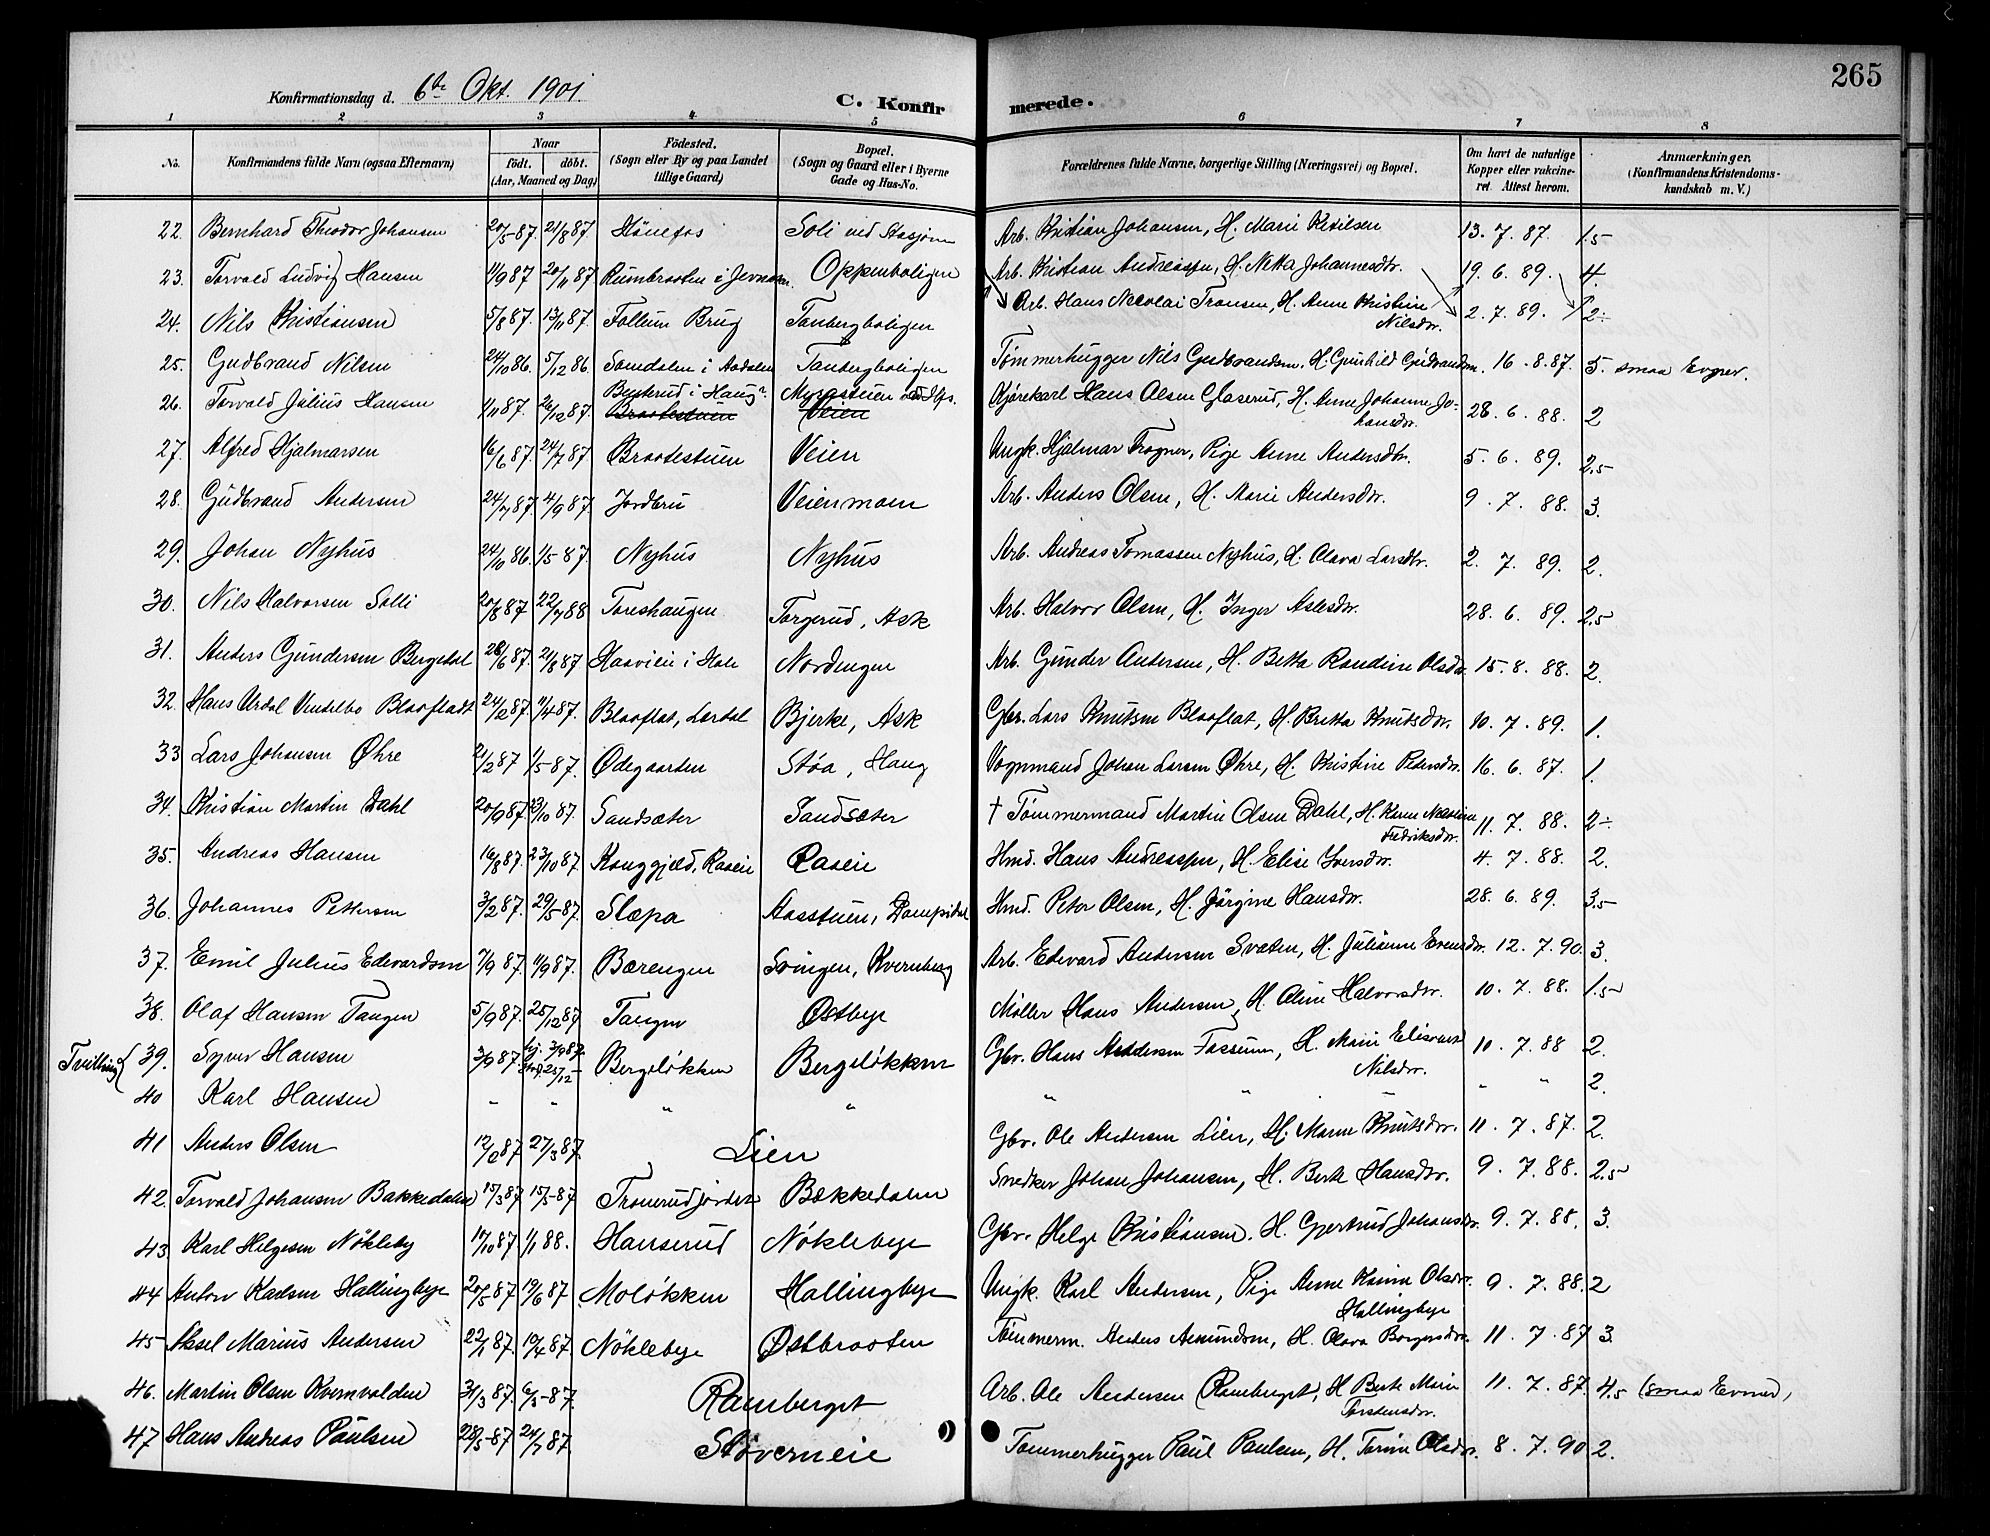 265
Konfirmationsdag d. 6te Okt. 1901
C. Konfirmerede.
1 2 3 4 5 6 7 8
No. Konfirmandens fulde Navn (ogsaa Efternavn) Naar født. døbt. (Aar, Maaned og Dag) Fødested. (Sogn eller By og paa Landet tillige Gaard) Bopæl. (Sogn og Gaard eller i Byerne Gade og Hus-No. Forældrenes fulde Navne, borgerlige Stilling (Næringsvei) og Bopæl. Om havt de naturlige Kopper eller vakcineret. Attest herom. Anmærkninger. (Konfirmandens Kristendomskundskab m. V.)
22. Bernhard Theodor Johansen 20/5-87. 21/8 87 Hönefos Soli ved Stasjonen Arb. Kristian Johansen, H. Marie Ketilsen 13. 7. 87. 1.5
23. Torvald Ludvig Hansen 11/9 87 20/11 87 i Jevnaker. Oppenboligen Arb. Kristian Andreassen, H. Netta Johannesdtr. 19. 6. 89. 4.
24. Nils Kristiansen 5/8 87. 13/11 87. Follum Brug Tanbergboligen Arb. Hans Necolai Fransen, H. Anne Kristine Nilsdtr. 2. 7. 89. 2÷
25. Gudbrand Nilsen 24/10 86. 5/12 86. Somdalen i Aadalen Tanbergboligen Tømmerhugger Nils Gudbrandsen, H. Gunhild Gudbrandsen. 16. 8. 87. 5. smaa Evner.
26. Torvald Julius Hansen 1/11 87. 26/12 87. Busterud i Haug Braatestuen Myrastuen Veien Kjørekarl Hans Olsen Glaserud, H. Anne Johanne Johansdtr. 28. 6. 88. 2
27. Alfred Hjalmarsen 16/6 87. 24/7 87. Braatestuen Veien Ungk. Hjalmar Frogner, Pige Anne Andersdtr. 5. 6. 89. 2.5
28. Gudbrand Andersen 24/7 87. 4/9 87. Jordbru Veienmoen Arb. Anders Olsen, H. Marie Andersdtr. 9. 7. 88. 3.
29. Johan Nyhus 24/10 86. 1/5 87. Nyhus Nyhus Arb. Andreas Tomassen Nyhus, H. Olava Larsdtr. 2. 7. 89. 2.
30. Nils Halvorsen Solli 20/8 87 22/7 88 Toreshaugen Torgerud, Ask Arb. Halvor Olsen, H. Inger Aslesdtr. 28. 6. 89. 2.5
31. Anders Gundersen Bergedal 28/6 87. 21/8 87. i Hole Nordengen Arb. Gunder Andersen, H. Betta Randine Olsdtr. 15. 8. 88. 2.
32. Hans Urdal Vindelbo Blaafladt 24/2 87. 11/4 87. Blaaflat, Lerdal Bjerke, Ask Gbr. Lars Knutsen Blaaflat, H. Britta Knutsdtr. 10. 7. 89. 1.
33 Lars Johansen Øhre 21/2 87 1/5 87. Ødegaarden Støa, Haug Vognmand Johan Larsen Øhre, H. Kristine Pedersdtr. 16. 6. 87. 1.
34. Kristian Martin Dahl 20/9 87. 23/10 87. Sandsæter Sandsæter † Tømmermand Martin Olsen Dahl, H. Karen Fredriksdtr. 11. 7. 88. 2÷
35. Andreas Hansen 16/8 87. 23/10 87. Konggjeld, Raaen Raaen Hmd. Hans Andreassen, H. Elise Iversdtr. 4. 7. 88. 2.
36. Johannes Pettersen 3/2 87. 29/5 87. Slæpa Aasstuen, Hmd. Peter Olsen, H. Jörgine Hansdtr. 28. 6. 89. 3.5
37. Emil Julius Edevardsen 7/9 87. 11/9 87. Bærengen Svingen, Kvernberg Arb. Edevard Andersen Svaten, H. Julianne Evensdtr. 12. 7. 90. 3.
38. Olaf Hansen Tangen 5/9 87. 25/12 87 Tangen Østbye Møller Hans Andersen, H. Oline Halvorsdtr. 10. 7. 88. 1.5
Tvilling { 39. Syver Hansen 3/9 87 hj. 3/9 87. 25/12 Bergsløkken Bergsløkken Gbr. Hans Andersen Fossum, H. Marie Nilsdtr. 10. 7. 88 2.
40 Karl Hansen " " " " " " " " 2.
41 Anders Olsen 12/2 87 27/3 87. Lien Gbr. Ole Andersen Lien, H. Maren Knutsdtr. 11. 7. 87. 2.
42. Torvald Johansen Bakkedalen 15/3 87 15/5-87 Tronrudjordet Bækkedalen Snedker Johan Johansen, H. Berte Hansdtr. 9. 7. 88. 2.5
43 Karl Helgesen Nökleby 17/10 87 1/1 88. Hanserud Nöklebye Gbr. Helge Kristiansen. H. Gjertrud Johansdtr. 9. 7. 88. 3.
44 Anton Karlsen Hallingbye 20/5 87. 19/6 87 Moløkken Hallingbye Ungk. Karl Andersen, Pige Anne Karine Olsdtr. Hallingbye 9. 7. 88. 2
45 Aksel Marius Andersen 22/1 87. 10/4 87. Nöklebye Østbraaten Tömmerm. Anders Amundsen, H. Olava Borgersdtr. 11. 7. 87 3.
46. Martin Olsen Kvernvolden 31/3 87. 6/5-87. Ramberget Arb. Ole Andersen Ramberget, H Berte Marie Torstensdtr. 11. 7. 87. 4.5 (smaa Evner),
47 Hans Andreas Paulsen 28/5-87 24/7 87. Stöverneie Tømmerhugger Paul Paulsen, H. Torine Olsdtr. 8. 7. 90 2.